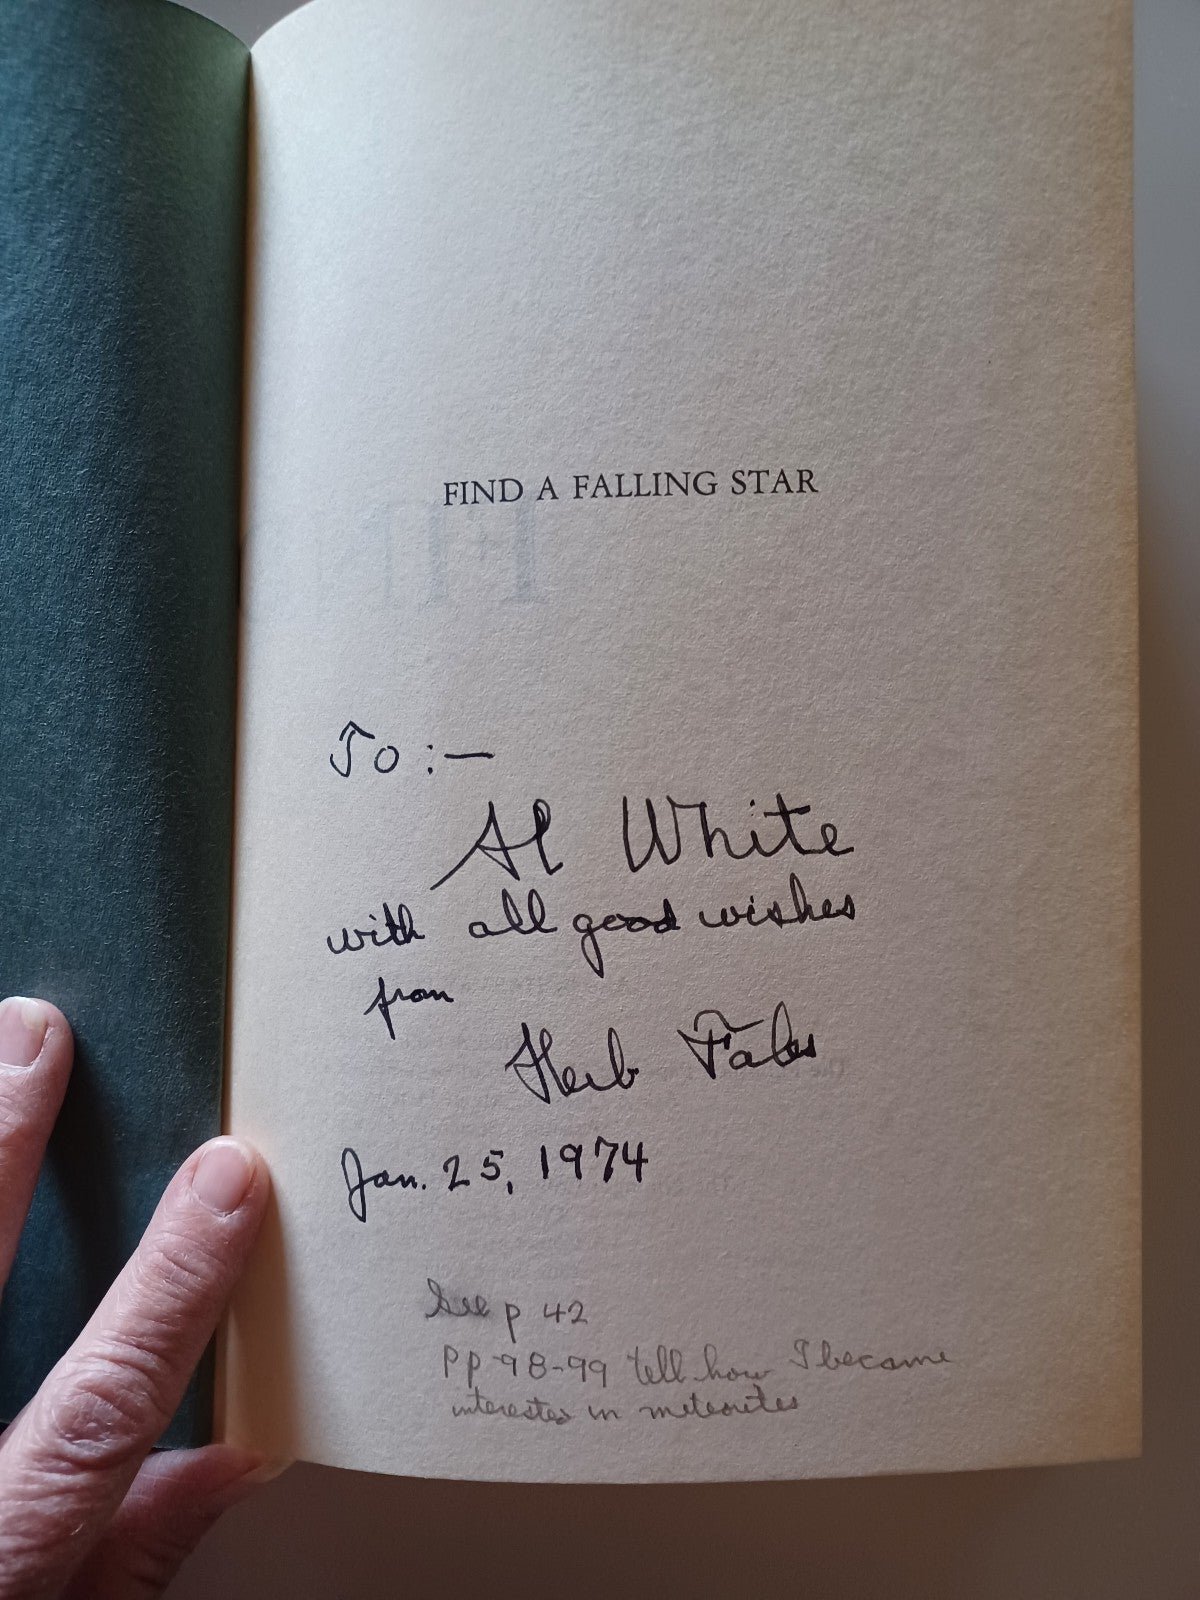 FIND A FALLING STAR
To :—
Al White
with all good wishes
from
Herb Fales
Jan. 25, 1974
See p 42
pp 98-99 tell how I became
interested in meteorites